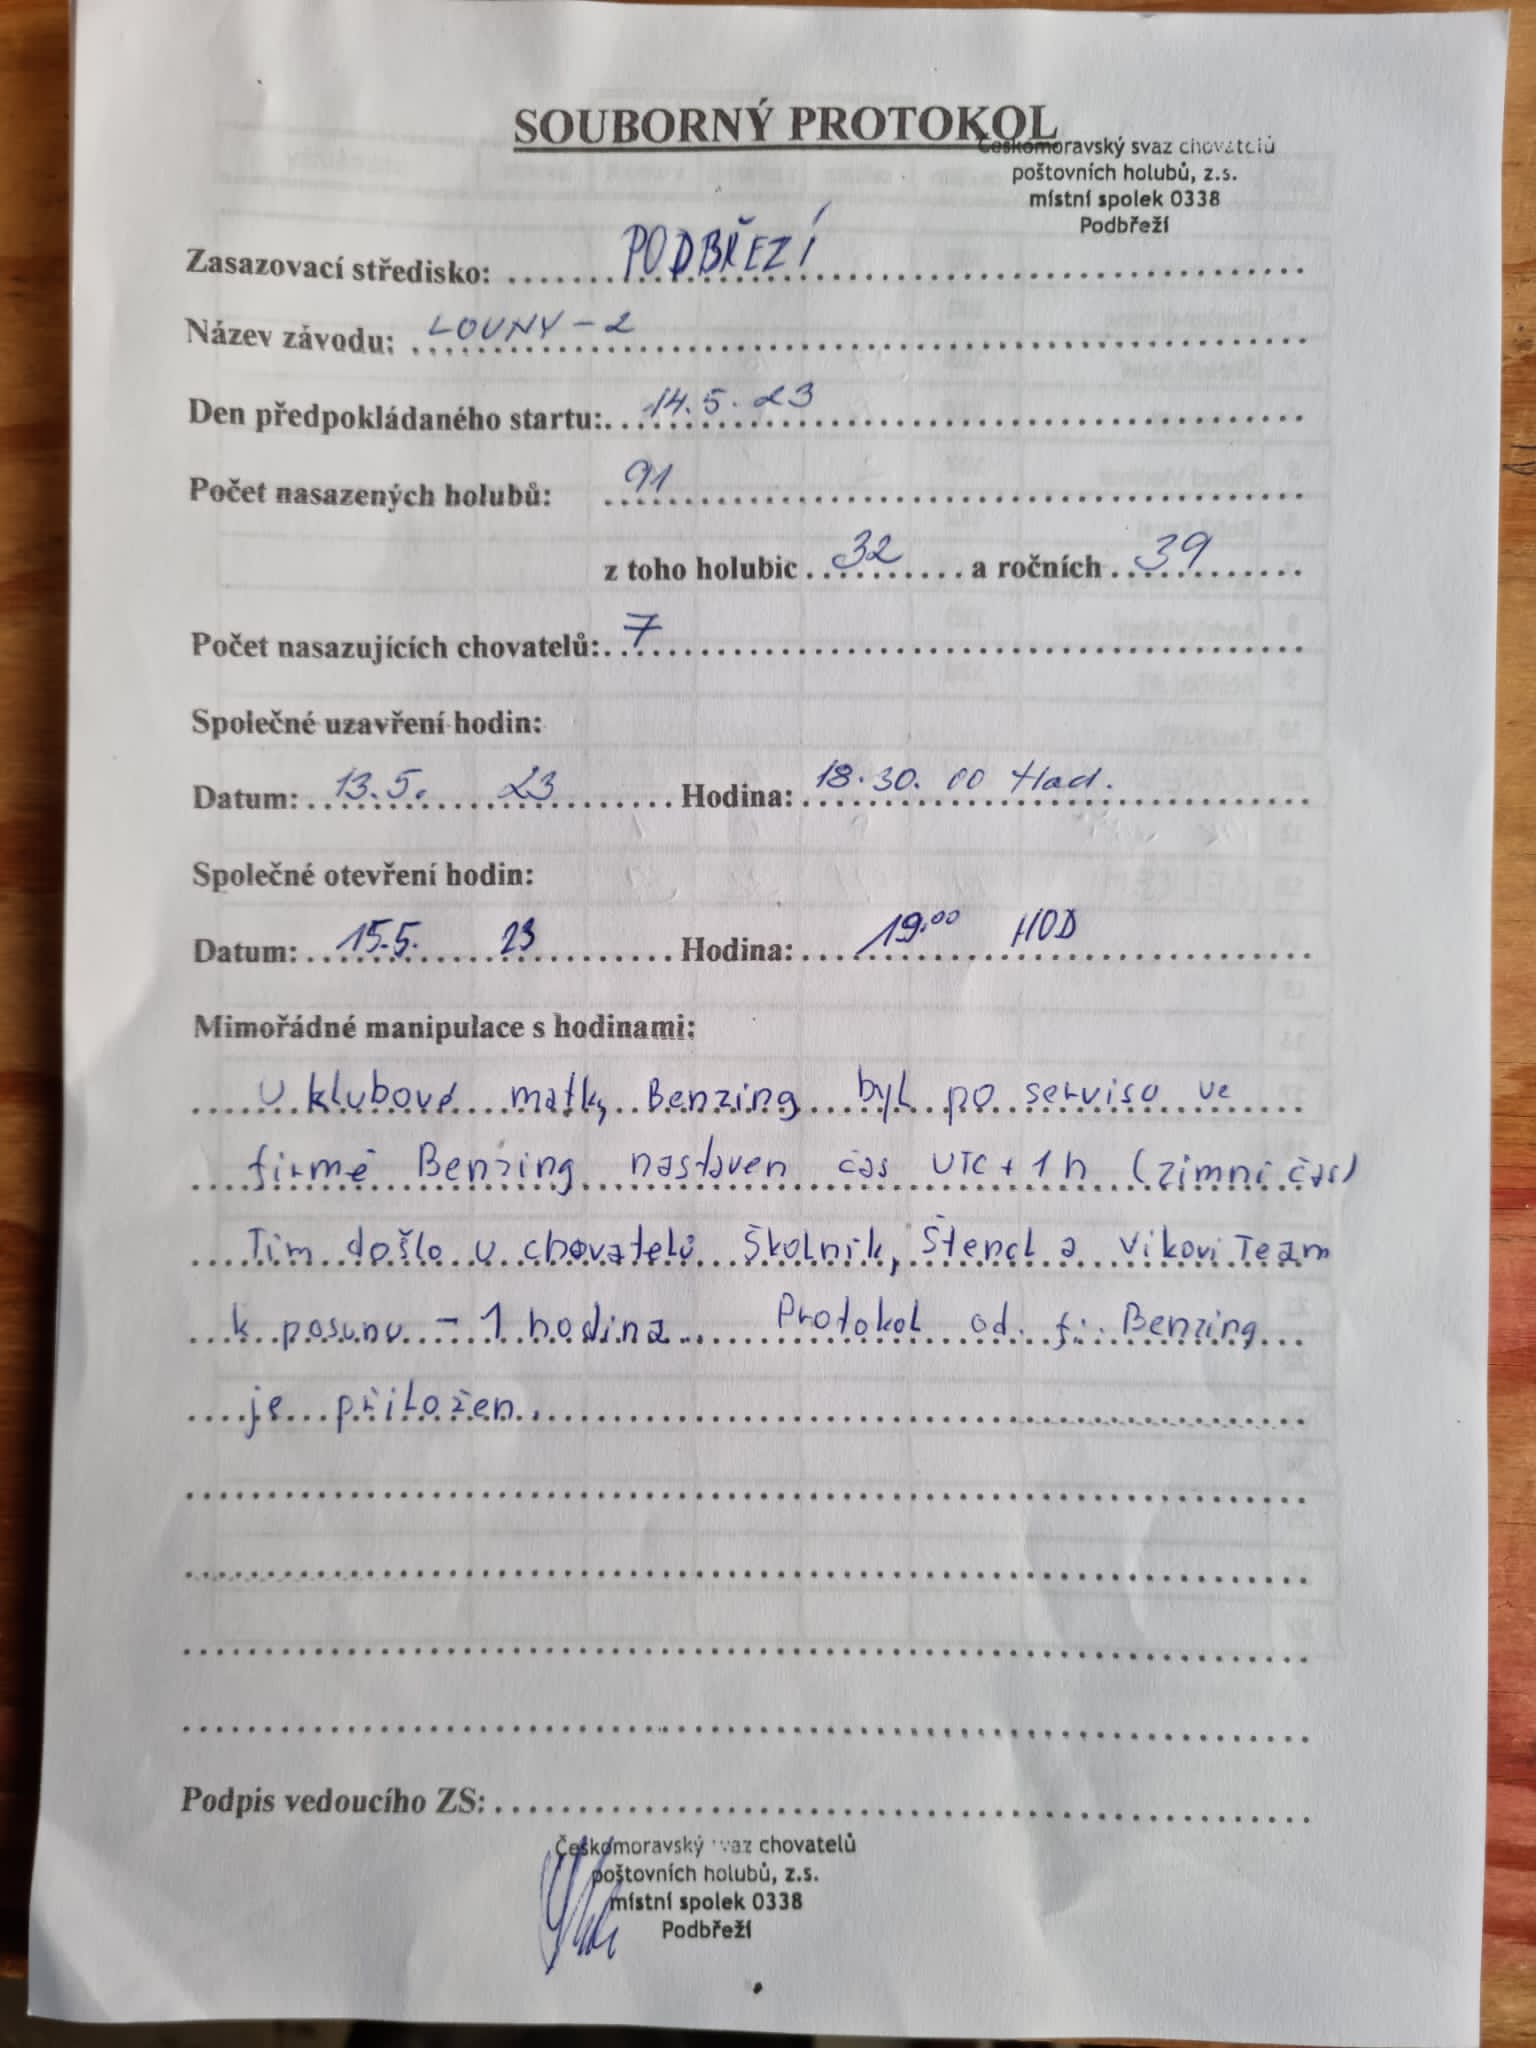 SOUBORNÝ PROTOKOL
Českomoravský svaz chovatelů
poštovních holubů, z.s.
místní spolek 0338
Podbřeží
Zasazovací středisko: PODBŘEZÍ
Název závodu: LOUNY - 2
Den předpokládaného startu: 14.5.23
Počet nasazených holubů: 91
z toho holubic 32 a ročních 39
Počet nasazujících chovatelů: 7
Společné uzavření hodin:
Datum: 13.5. 23 Hodina: 18.30.00 Hod.
Společné otevření hodin:
Datum: 15.5. 23 Hodina: 19.00 HOD
Mimořádné manipulace s hodinami:
U klubové matky Benzing byl po servisu ve
firmě Benzing nastaven čas UTC + 1 h (zimní čas)
Tím došlo u chovatelů Školník, Štencl a Vikovi Team
k posunu - 1 hodina. Protokol od fi. Benzing
je přiložen.
Podpis vedoucího ZS:
Českomoravský svaz chovatelů
poštovních holubů, z.s.
místní spolek 0338
Podbřeží